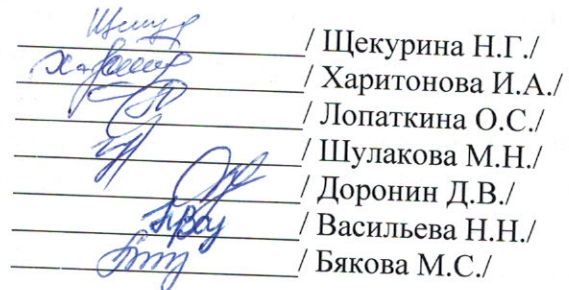 / Щекурина Н.Г./
/ Харитонова И.А./
/ Лопаткина О.С./
/ Шулакова М.Н./
/ Доронин Д.В./
/ Васильева Н.Н./
/ Бякова М.С./